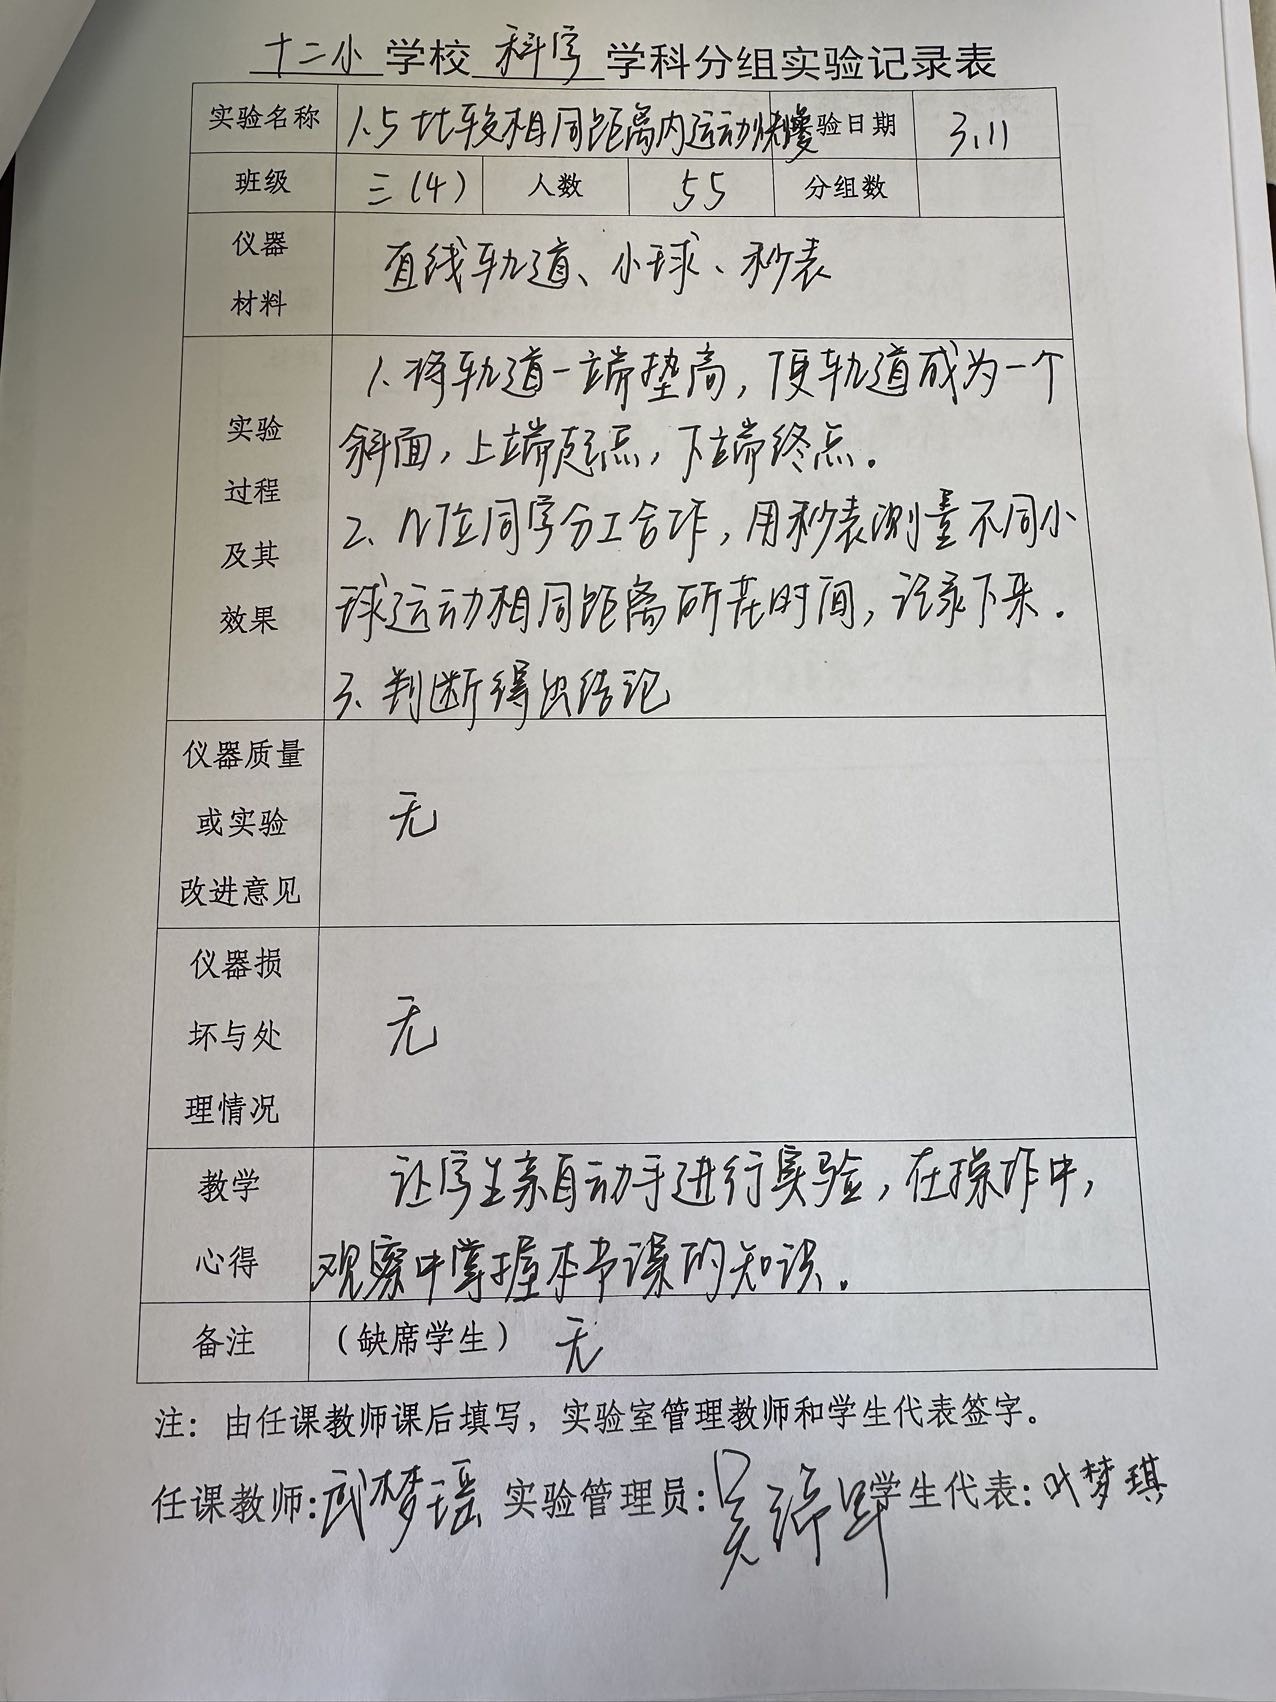 十二小 学校 科学 学科分组实验记录表
实验名称 1.5 比较相同距离内运动快慢 实验日期 3.11
班级 三(4) 人数 55 分组数
仪器
材料
直线轨道、小球、秒表
实验
过程
及其
效果
1. 将轨道一端垫高，使轨道成为一个
斜面，上端起点，下端终点。
2、几位同学分工合作，用秒表测量不同小
球运动相同距离所花时间，记录下来.
3、判断得出结论
仪器质量
或实验
改进意见
无
仪器损
坏与处
理情况
无
教学
心得
让学生亲自动手进行实验，在操作中，
观察中掌握本节课的知识.
备注 (缺席学生) 无
注：由任课教师课后填写，实验室管理教师和学生代表签字。
任课教师:武梦瑶 实验管理员:吴 学生代表:叶梦琪